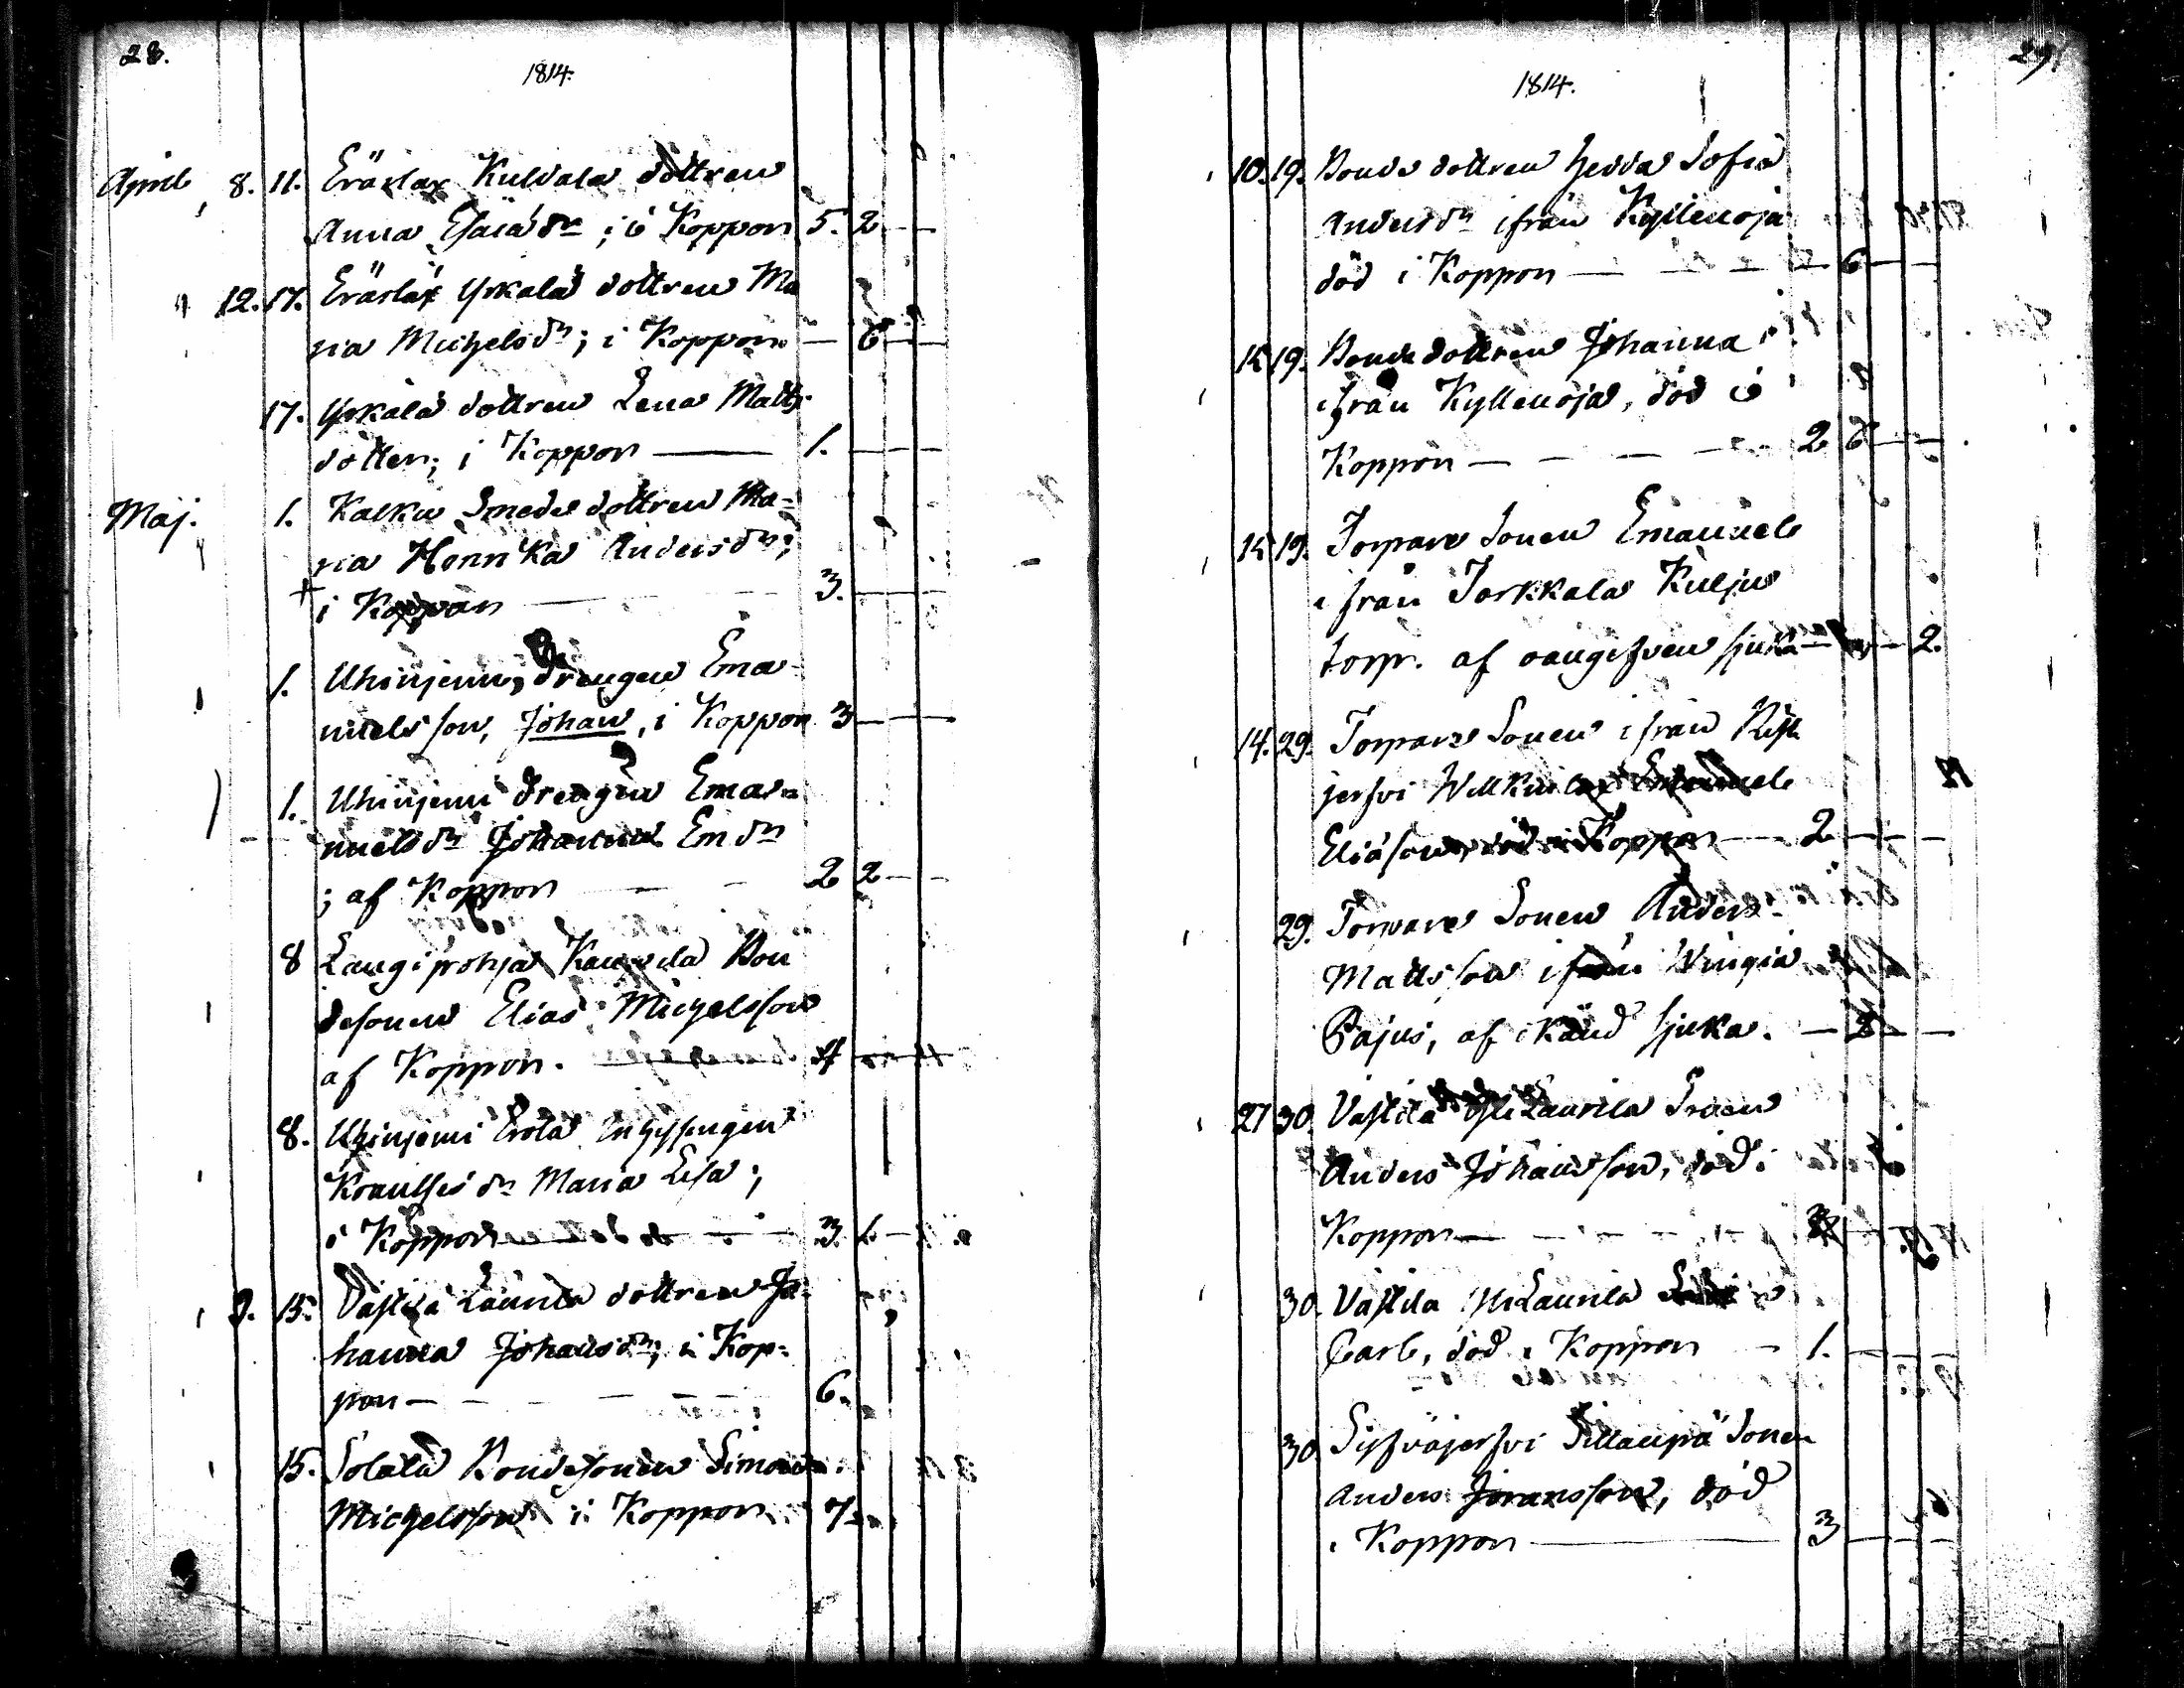 28.
1814.
April 8. 11. Eräslax Kuldala dottren
Anna Esaiæ dr ; i Koppon 5. 2 — —
12. 17. Eräslax Yrkalä dottren Ma
ria Michelsdr; i Koppon — 6 — —
17. Yrkälä dottren Lena Matts
dotter; i Koppor — 1. — — —
Maj. 1. Kalku Smeds dottren Ma=
ria Henrika Andersdr;
i Koppon — 3. — — —
1. Uhinjemi, drengen Ema-
nuels son, Johan, i Koppon 3 — — —
1. Uhinjemi drengen Ema=
nuelsdr Johanna Em dr
; af Koppon — 2 2 — —
8 Langipohja Kaurila Bon
desonen Elias Michelsson
af Koppon. — 4 — — —
8. Uhinjemi Erola
dr Maria Lisa;
i Koppon — 3. 1. —
9. 15. Vastila Laurila dottren Jo=
hanna Johansdr; i Kop=
pon — 6.
15. Solala Bondesonen Simon
Michelsson i Koppon 7
29
1814.
10. 19. Bonde dottren Hedda Sofia
Andersdr ifrån Kyllenoja
död i Koppon — 6 — —
14 19. Bonde dottren Johanna
ifrån Kyllenoja, död i
Koppon — 2 6 — —
14 19. Torpare Sonen Emanuel
ifrån Torkkala Kulju
torp. af oangifven sjuka — — — 2.
14. 29. Torpare Sonen ifrån
jerfvi
Eliasson, död i Koppon — 2 — — —
29. Torpare Sonen Anders
Mattsson ifrån Wingiä
Pajus, af okänd sjuka. — 8 — —
27 30. Vastila Yli Laurila Sonen
Anders Johansson, död i
Koppon —
30. Vastila Yli Laurila
Carl, död i Koppon — 1. — — —
30. Syfväjerfvi Sillanpä Sonen
Anders Joransson, död
i Koppon — 3 — — —